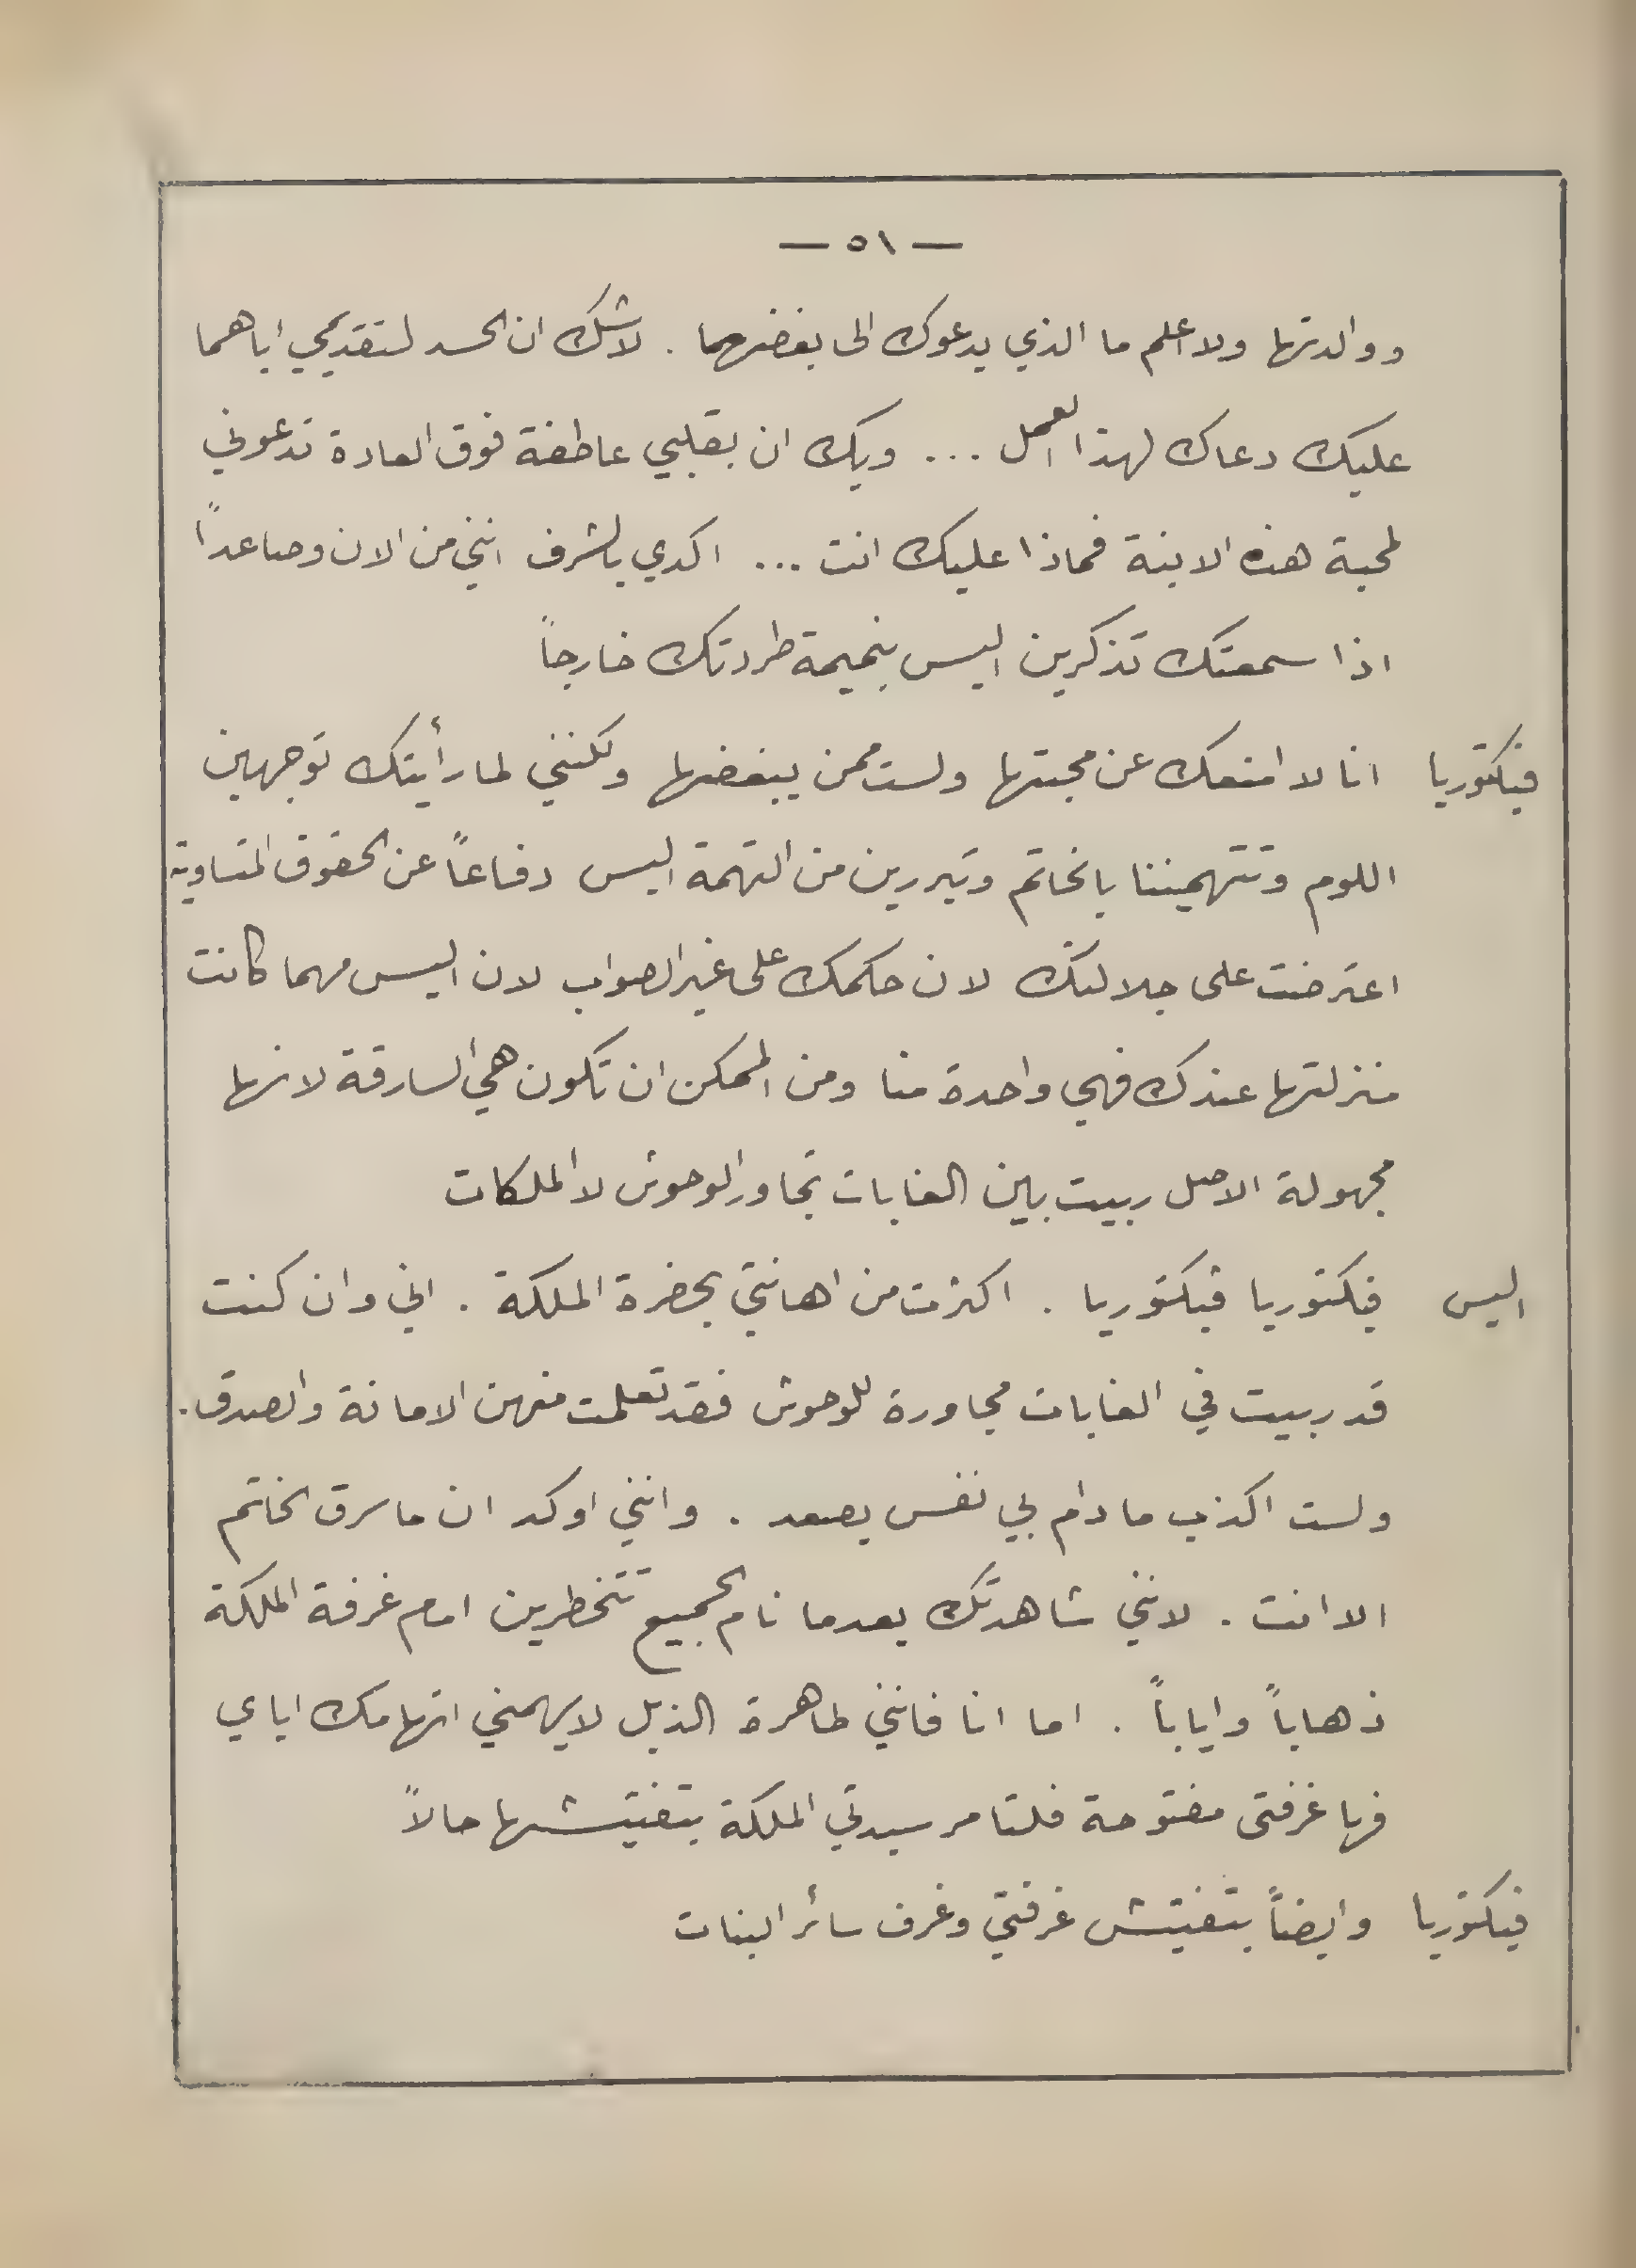 — ٥١ —
ووالدتها ولا اعلم ما الذي يدعوك الى بغضهما . لا شك ان الحسد لتقديمي اياهما
عليك دعاك لهذا العمل ... ويك ان بقلبي عاطفة فوق العادة تدعوني
لمحبة هذه الابنة فماذا عليك انت ... اكدي بالشرف انني من الان وصاعداً
اذا سمعتك تذكرين اليس بنميمة طردتك خارجاً
فيكتوريا انا لا امنعك عن محبتها ولست ممن يبغضها ولكنني لما رأيتك توجهين
اللوم وتتهميننا بالخاتم وتبررين من التهمة اليس دفاعاً عن الحقوق المتساوية
اعترضت على جلالتك لان حكمك على غير الصواب لان اليس مهما كانت
منزلتها عندك فهي واحدة منا ومن الممكن ان تكون هي السارقة لانها
مجهولة الاصل ربيت بين الغابات تجاور الوحوش لا الملكات
اليس فيكتوريا فيكتوريا . اكثرت من اهانتي بحضرة الملكة . اني وان كنت
قد ربيت في الغابات مجاورة للوحوش فقد تعلمت منهن الامانة والصدق .
ولست اكذب ما دام بي نفس يصعد . وانني اوكد ان ما سرق الخاتم
الا انت . لانني شاهدتك بعدما نام الجميع تتخطرين امام غرفة الملكة
ذهاباً واياباً . اما انا فانني طاهرة الذيل لا يهمني اتهامك اياي
فها غرفتي مفتوحة فلتامر سيدتي الملكة بتفتيشها حالاً
فيكتوريا وايضاً بتفتيش غرفتي وغرف سائر البنات